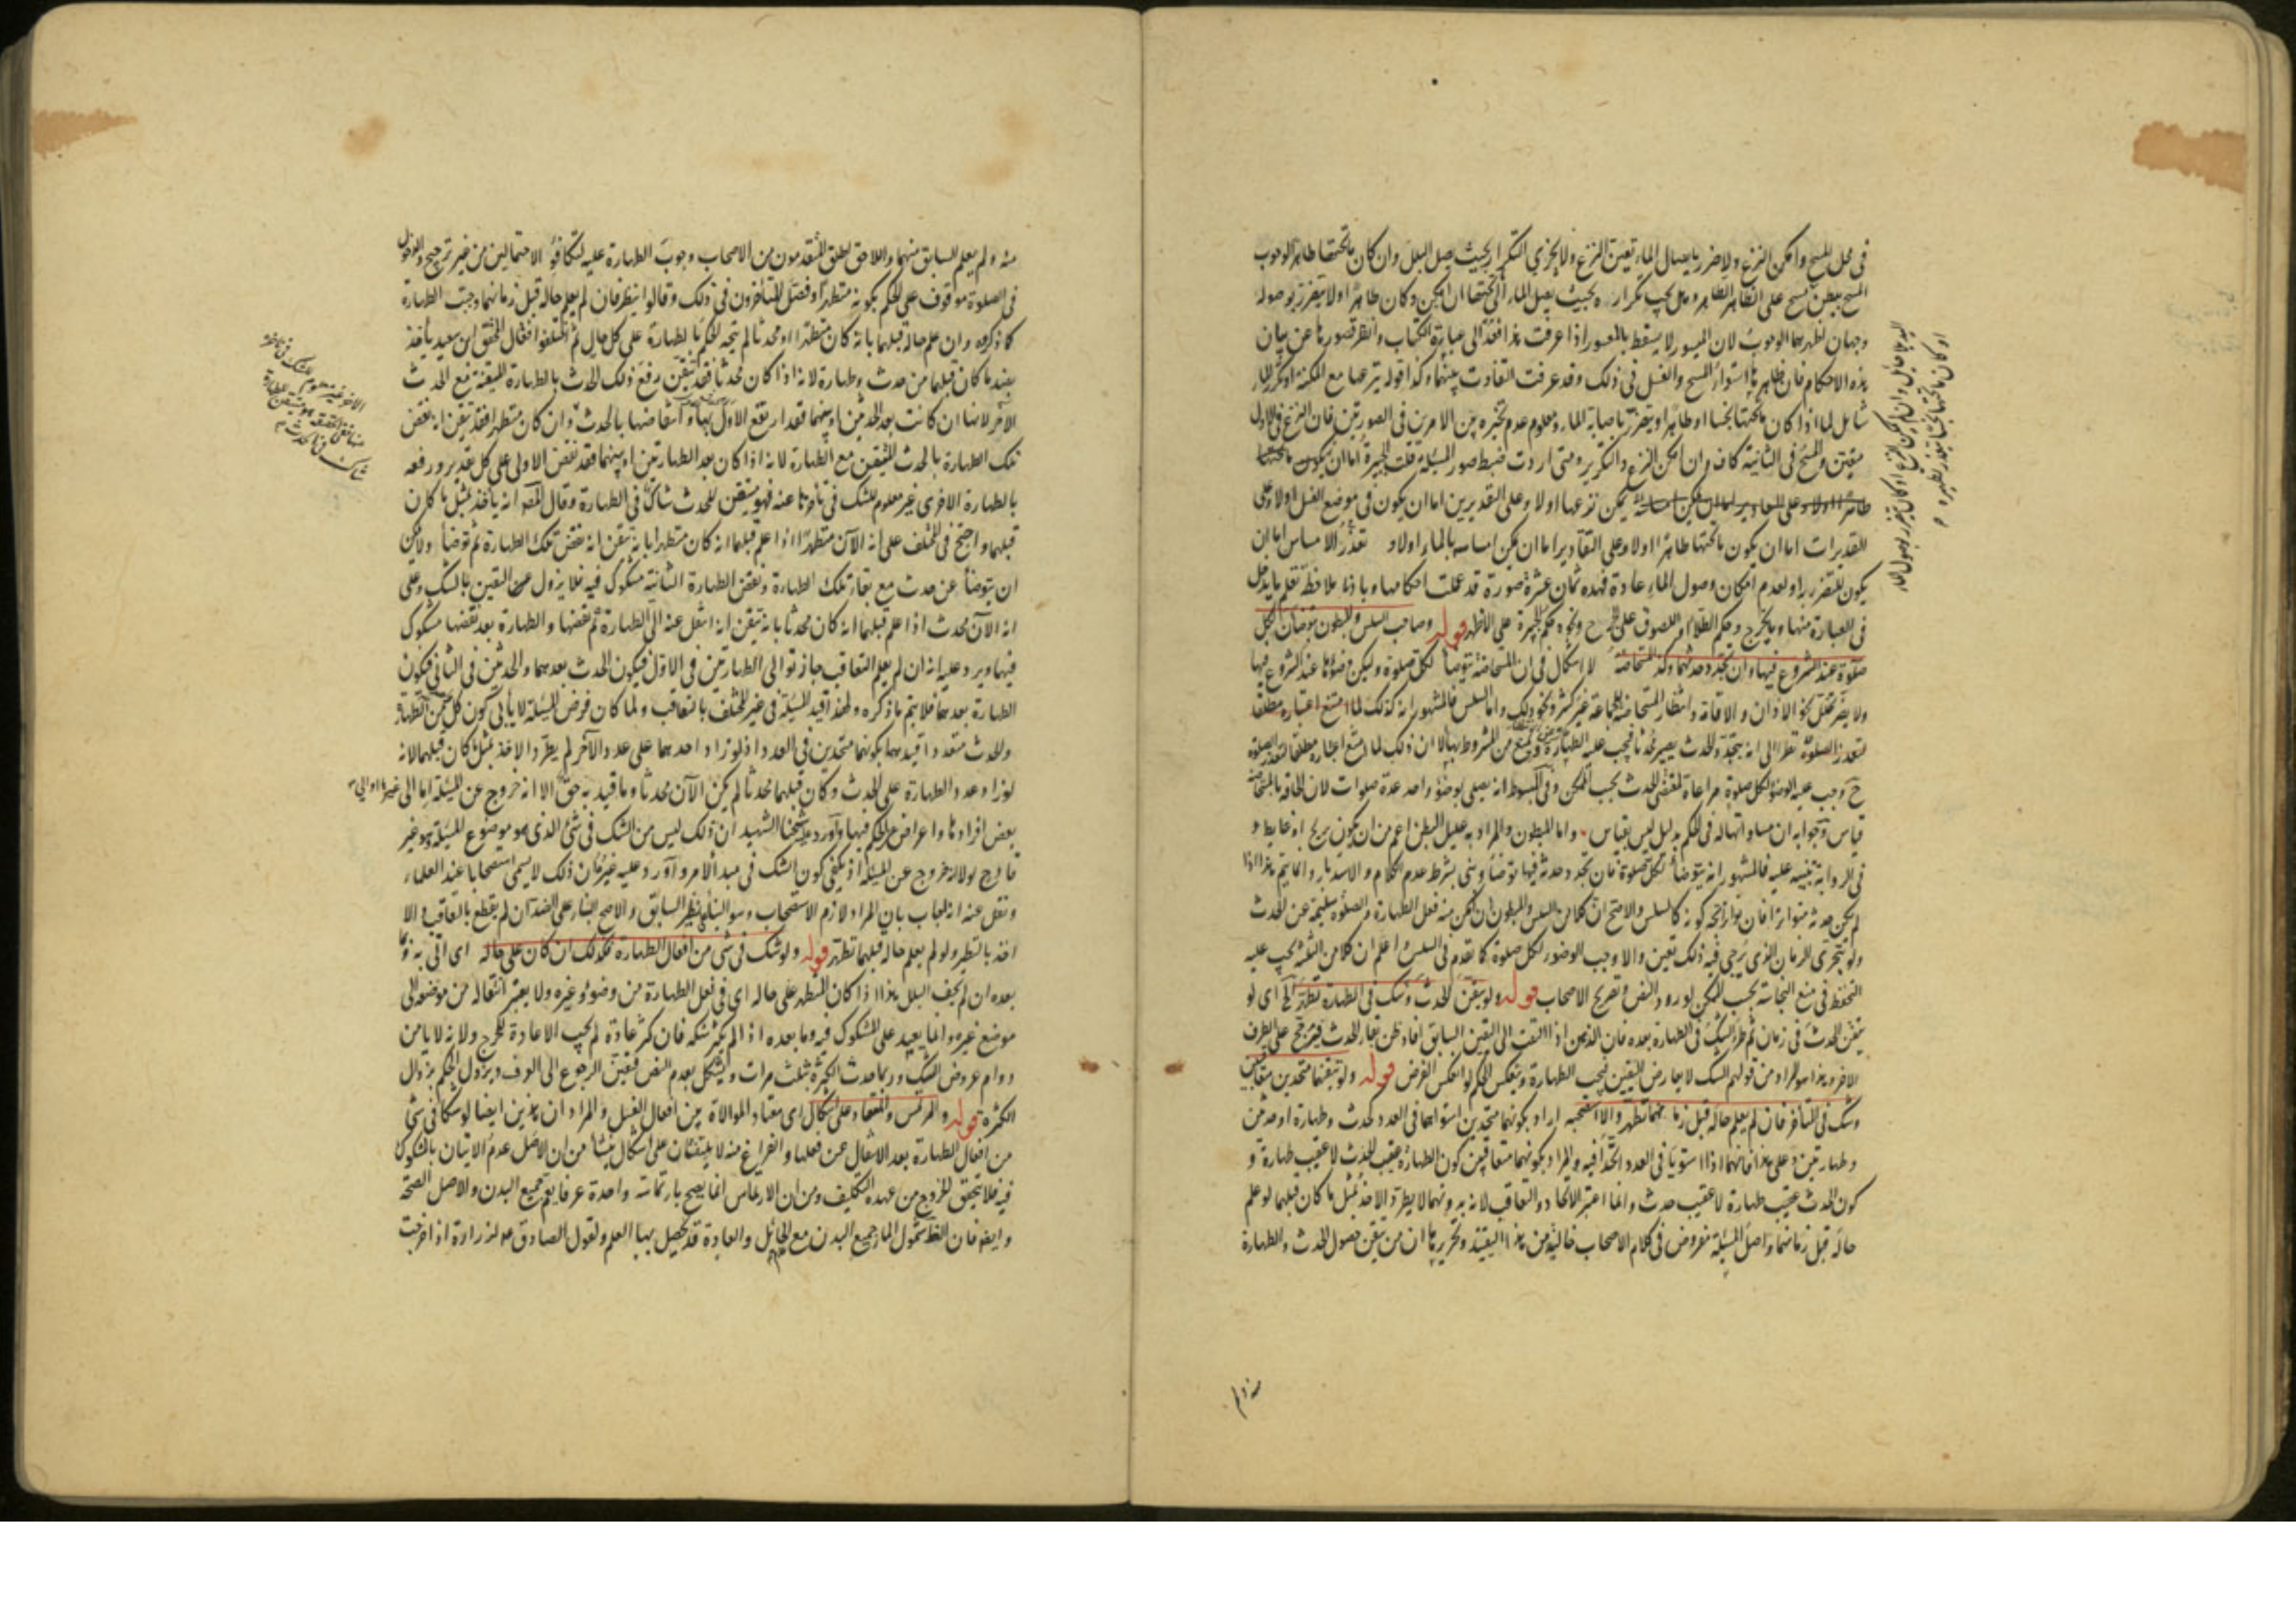 في محل المسح وامكن النزع ولا ضرر بايصال الماء تعين النزع ولا يجزي التكرار بحيث يصل البلل وان كان ما تحتها طاهرا لوجوب
المسح ببطن مسح على الظاهر الطاهر وهل يجب تكراره بحيث يصل الماء الى تحتها ان امكن وكان طاهرا اولا يتضرر بوصوله
وجهان اظهرهما الوجوب لان الميسور لا يسقط بالمعسور اذا عرفت هذا فعد الى عبارة الكتاب وانظر قصورها عن بيان
هذه الاحكام فان ظاهرها استواء المسح والغسل في ذلك وقد عرفت التفاوت بينهما وكذا قوله ينزعها مع المكنة او كرر الماء
شامل لما اذا كان ما تحتها نجسا او طاهرا ويتضرر باصابة الماء ومعلوم عدم تخيره بين الامرين في الصورتين فان النزع في الاول
متعين والمسح في الثانية كاف وان امكن النزع والتكرير ومتى اردت ضبط صور المسئلة قلت الجبيرة اما ان يكون ما تحتها
يمكن نزعها اولا وعلى التقديرين اما ان يكون في موضع الغسل اولا وعلى
التقديرات اما ان يكون ما تحتها طاهرا اولا وعلى التقادير اما ان يمكن امساسه بالماء اولا وتعذر الامساس اما ان
يكون للتضرر به او لعدم امكان وصول الماء عادة فهذه ثمان عشرة صورة قد علمت احكامها وبادنى ملاحظة تعلم ما يدخل
في العبارة منها وما يخرج وحكم الطلاء واللصوق على الجرح ونحوه حكم الجبيرة على الاظهر قوله وصاحب السلس والمبطون يتوضأن لكل
صلوة عند الشروع فيها وان تجدد حدثهما وكذا المستحاضة لا اشكال في ان المستحاضة تتوضأ لكل صلوة وليكن وضوءها عند الشروع فيها
ولا يضر تخلل نحو الاذان والاقامة وانتظار المستحاضة للجماعة غير كثير ونحو ذلك واما السلس فالمشهور انه كذلك لما امتنع اعتباره مطلقا
لتعدد الصلوة نظرا الى انه بتجدد الحدث يصير محدثا فيجب عليه الطهارة ويمنع من المشروط بها الا ان ذلك لما امتنع اعتباره مطلقا لتعذر الصلوة
ح وجب عليه الوضوء لكل صلوة مراعاة لمقتضى الحدث بحسب الممكن وفي المبسوط انه يصلي بوضوء واحد عدة صلوات لان الحاقه بالمستحاضة
قياس وجوابه ان مساواتهما له في الحكم بدليل ليس بقياس واما المبطون والمراد به عليل البطن اعم من ان يكون بريح او غايط و
في الرواية تنبيه عليه فالمشهور انه يتوضأ لكل صلوة فان تجدد حدثه فيها توضأ وبنى بشرط عدم الكلام والاستدبار وانما يتم هذا اذا
لم يكن حدثه متواترا فان تواتر اتجه كونه كالسلس والاصح ان كلا من السلس والمبطون ان تمكن منه فعل الطهارة والصلوة سليمة عن الحدث
ولو بتحري الزمان الذي يرجى فيه ذلك تعين والا وجب الوضوء لكل صلوة كما تقدم في السلس واعلم ان كلا من الثلثة يجب عليه
التحفظ في منع النجاسة بحسب الممكن لورود النص وتصريح الاصحاب قوله ولو تيقن الحدث وشك في الطهارة تطهر الخ اي لو
تيقن الحدث في زمان ثم طرأ الشك في الطهارة بعده فان الذهن اذا التفت الى اليقين السابق افاد ظن بقاء الحدث فيترجح على الطرف
الاخر وهذا هو المراد من قولهم الشك لا يعارض اليقين فتجب الطهارة وينعكس الحكم لو انعكس الفرض قوله ولو تيقنهما متحدين متعاقبين
وشك في المتأخر فان لم يعلم حاله قبل زمانهما تطهر والا استصحبه اراد بكونهما متحدين استوائهما في العدد كحدث وطهارة او حدثين
وطهارتين وعلى هذا فانهما اذا استويا في العدد اتحدا فيه والمراد بكونهما متعاقبين كون الطهارة عقيب الحدث لا عقيب طهارة و
كون الحدث عقيب طهارة لا عقيب حدث وانما اعتبر الاتحاد والتعاقب لانه بدونهما لا يطرد الاخذ بمثل ما كان قبلهما لو علم
حاله قبل زمانهما واصل المسئلة مفروض في كلام الاصحاب خالية من هذا التقييد وتحريرها ان من تيقن حصول الحدث والطهارة
او كان ما تحتها نجسا يتعذر تطهيره
منه ولم يعلم السابق منهما واللاحق اطلق المتقدمون من الاصحاب وجوب الطهارة عليه لتكافؤ الاحتمالين من غير ترجيح والدخول
في الصلوة موقوف على الحكم بكونه متطهرا وفصل المتأخرون في ذلك وقالوا ينظر فان لم يعلم حاله قبل زمانهما وجبت الطهارة
كما ذكروه وان علم حاله قبلهما بانه كان متطهرا او محدثا لم يتجه الحكم بالطهارة على كل حال ثم اختلفوا فقال المحقق ابن سعيد يأخذ
بضد ما كان قبلهما من حدث وطهارة لانه اذا كان محدثا فقد تيقن رفع ذلك الحدث بالطهارة المتيقنة مع الحدث
الاخر لانها ان كانت بعد الحدثين او بينهما فقد ارتفع الاول بها وانتقاضها بالحدث وان كان متطهرا فقد تيقن انه نقض
تلك الطهارة بالحدث المتيقن مع الطهارة لانه اذا كان بعد الطهارتين او بينهما فقد نقض الاولى على كل تقدير ورفعه
بالطهارة الاخرى غير معلوم للشك في تأخرها عنه فهو متيقن للحدث شاك في الطهارة وقال المصـ انه يأخذ بمثل ما كان
قبلهما واحتج في المختلف على انه الآن متطهر اذا علم قبلهما انه كان متطهرا بانه تيقن انه نقض تلك الطهارة ثم توضأ ولا يمكن
ان يتوضأ عن حدث مع بقاء تلك الطهارة ونقض الطهارة الثانية مشكوك فيه فلا يزول عن اليقين بالشك وعلى
انه الآن محدث اذا علم قبلهما انه كان محدثا بانه تيقن انه انتقل عنه الى الطهارة ثم نقضها والطهارة بعد نقضها مشكوك
فيها ويرد عليه انه ان لم يعلم التعاقب جاز توالي الطهارتين في الاول فيكون الحدث بعدهما والحدثين في الثاني فيكون
الطهارة بعدهما فلا يتم ما ذكره ولهذا قيد المسئلة في غير المختلف بالتعاقب ولما كان فرض المسئلة لا يأبى كون كل من الطهارة
والحدث متعددا قيدهما بكونهما متحدين في العدد اذ لو زاد احدهما على عدد الآخر لم يطرد الاخذ بمثل ما كان قبلهما لانه
لو زاد عدد الطهارة على الحدث وكان قبلهما محدثا لم يكن الآن محدثا وما قيد به حق الا انه خروج عن المسئلة اما الى غيرها او الى
بعض افرادها واعراض عن الحكم فيها واورد عليه شيخنا الشهيد ان ذلك ليس من الشك في شئ الذي هو موضوع المسئلة وهو غير
قادح بولانه خروج عن المسئلة اذ يكفي كون الشك في مبدأ الامر واورد عليه غيره ان ذلك لا يسمى استصحابا عند العلماء
ونقل عنه انه اجاب بان المراد لازم الاستصحاب وهو البناء على نظير السابق والاصح البناء على الضد ان لم يقطع بالتعاقب والا
اخذ بالنظير ولو لم يعلم حاله قبلهما تطهر قوله ولو شك في شئ من افعال الطهارة فكذلك ان كان على حاله اي اتى به وبما
بعده ان لم يجف البلل هذا اذا كان المتطهر على حاله اي في فعل الطهارة من وضوء وغيره ولا يعتبر انتقاله من موضعه الى
موضع غيره وانما يعيد على المشكوك فيه وما بعده اذا لم يكثر شكه فان كثر عادة لم يجب الاعادة للحرج ولانه لا يأمن
دوام عروض الشك وربما حدت الكثرة بثلث مرات ويشكل بعدم النص فتعين الرجوع الى العرف ويزول الحكم بزوال
الكثرة قوله والمرتمس والمعتاد على اشكال اي معتاد الموالاة بين افعال الغسل والمراد ان هذين ايضا لو شكا في شئ
من افعال الطهارة بعد الانتقال عن فعلها والفراغ منه لا يلتفتان على اشكال ينشأ من ان الاصل عدم الاتيان بالمشكوك
فيه فلا يتحقق الخروج من عهدة التكليف ومن ان الارتماس انما يصح بارتماسة واحدة عرفا يعم جميع البدن والاصل الصحة
وايضا فان الظ شمول الماء جميع البدن مع الحائل والعادة قد يحصل بها العلم ولقول الصادق عه لزرارة اذا خرجت